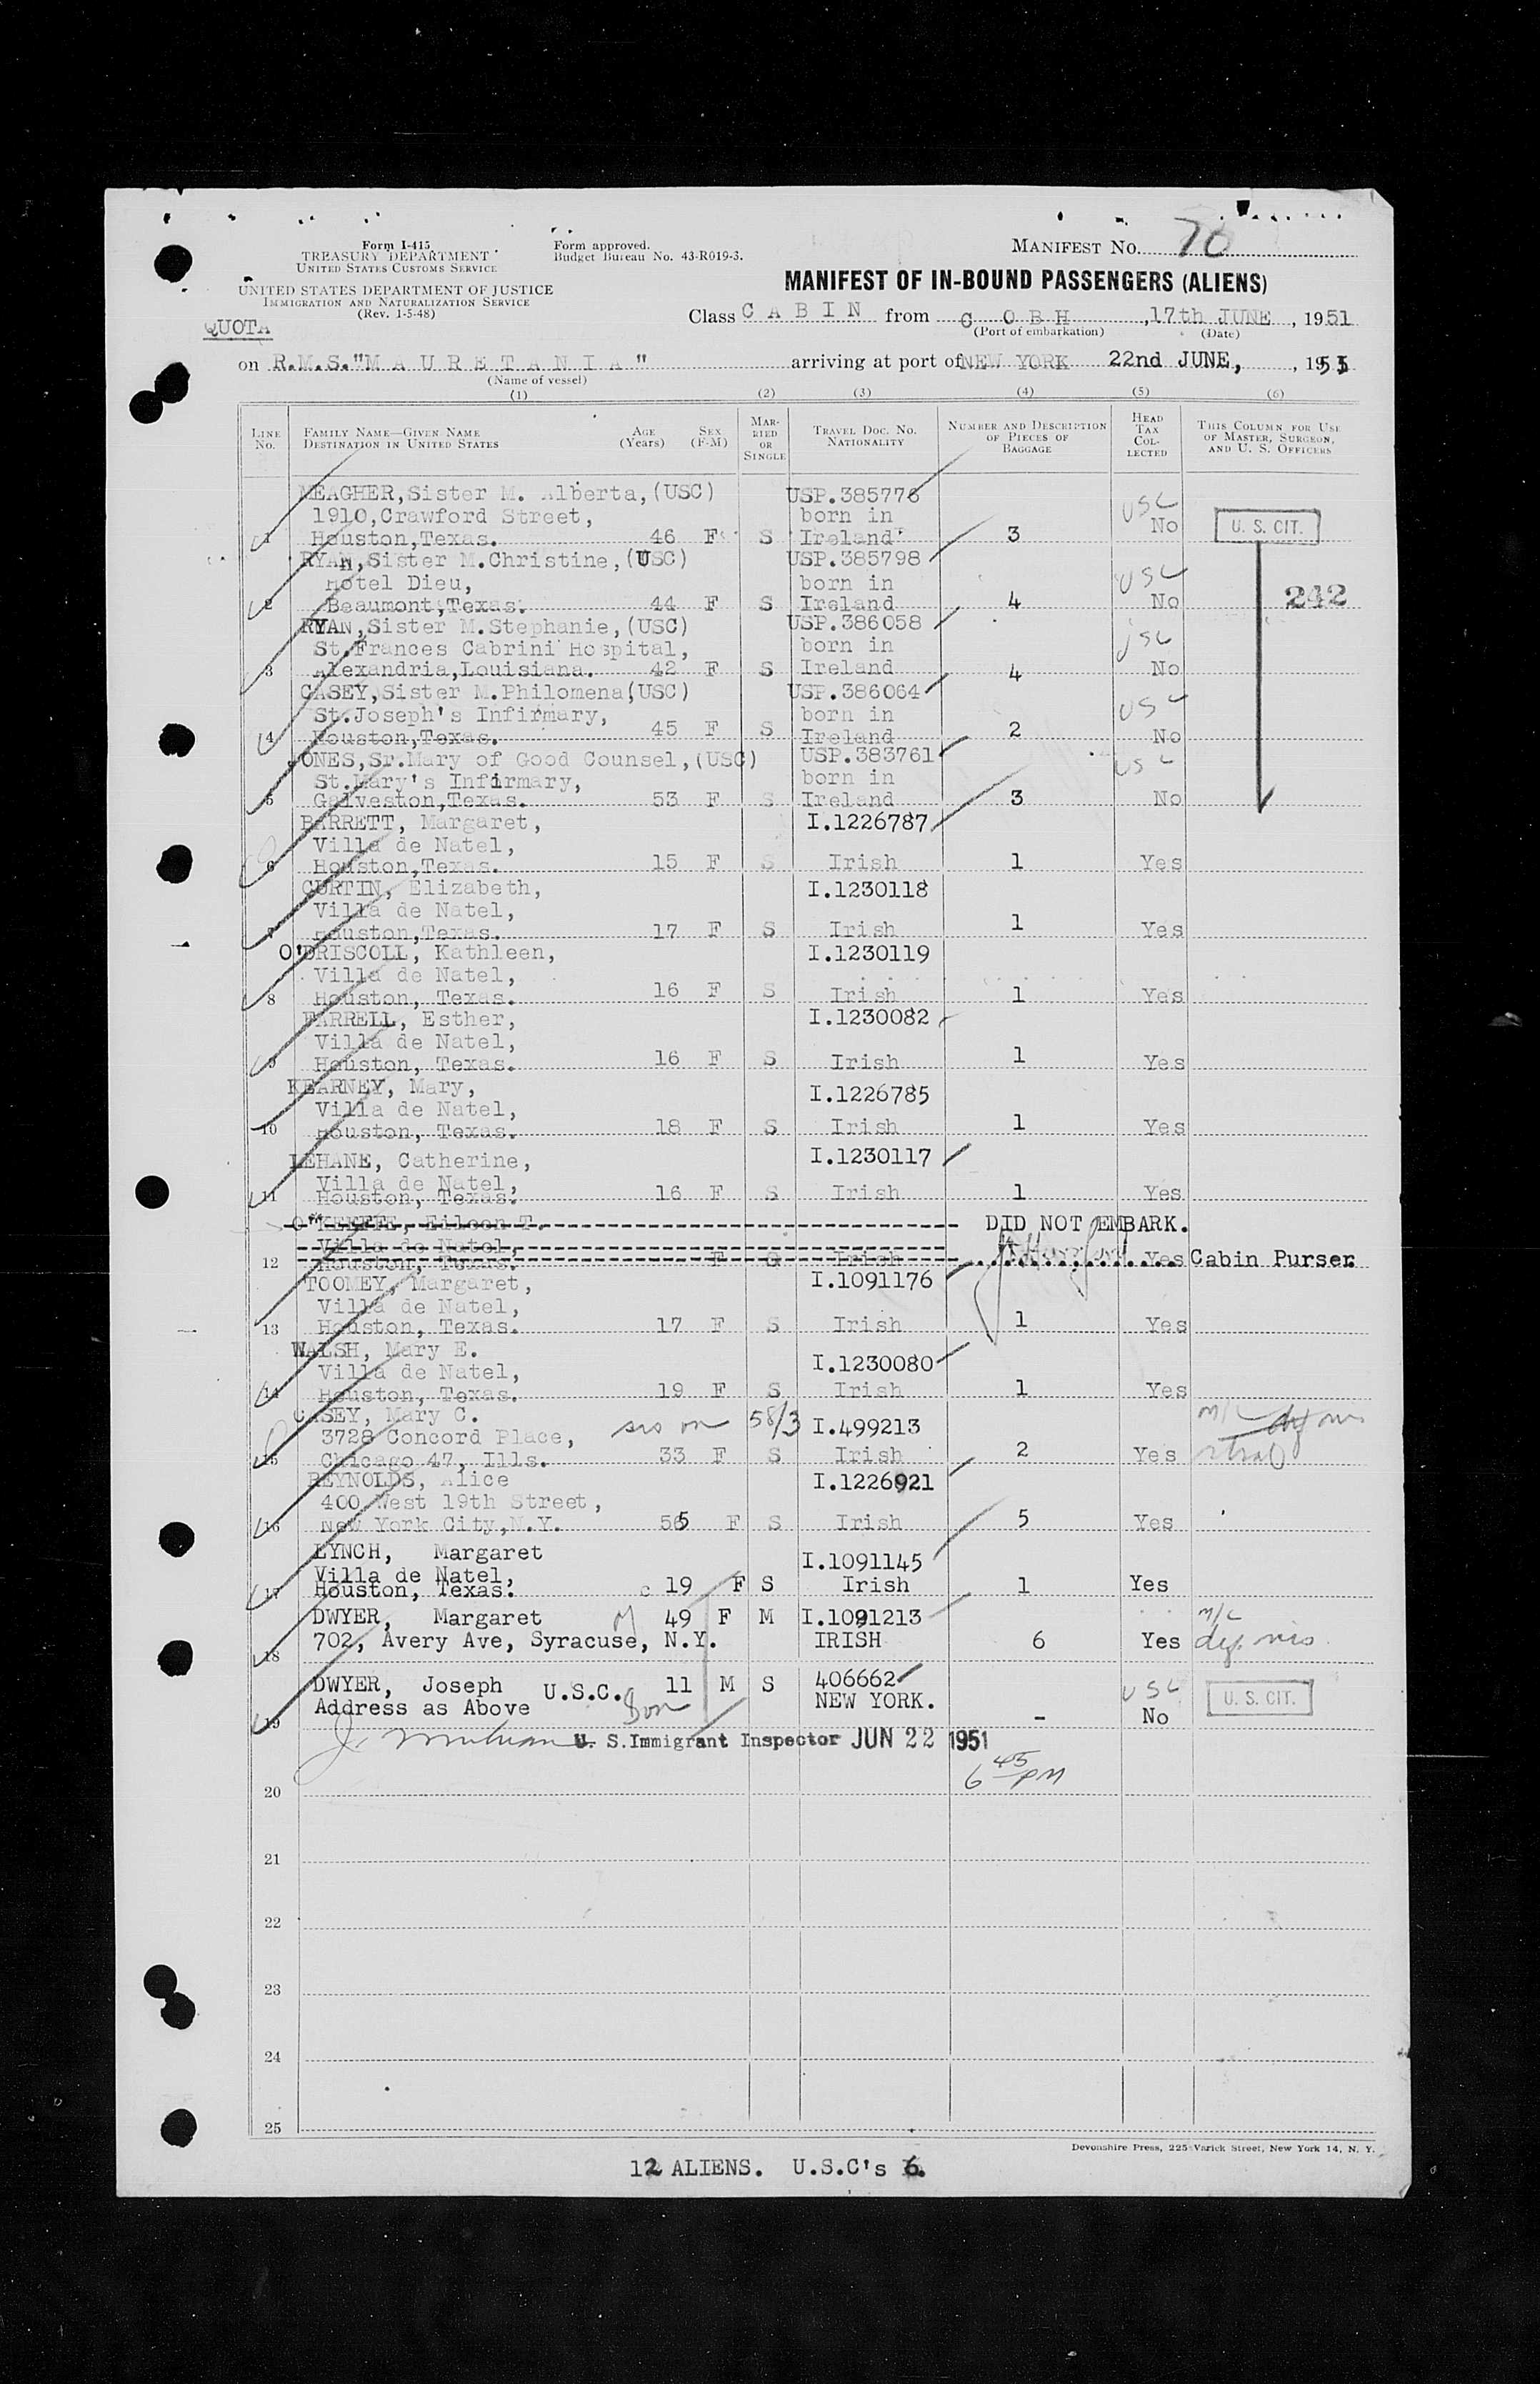 Form I-415
TREASURY DEPARTMENT
UNITED STATES CUSTOMS SERVICE
UNITED STATES DEPARTMENT OF JUSTICE
IMMIGRATION AND NATURALIZATION SERVICE
(Rev. 1-5-48)
Form approved.
Budget Bureau No. 43-R019-3.
MANIFEST NO. 70
MANIFEST OF IN-BOUND PASSENGERS (ALIENS)
QUOTA
Class C A B I N from C O B H , 17th JUNE , 1951
(Port of embarkation) (Date)
on R.M.S."M A U R E T A N I A" arriving at port of NEW YORK 22nd JUNE, , 1951
(Name of vessel)
(1) (2) (3) (4) (5) (6)
LINE No. FAMILY NAME—GIVEN NAME DESTINATION IN UNITED STATES AGE (Years) SEX (F-M) MARRIED OR SINGLE TRAVEL DOC. NO. NATIONALITY NUMBER AND DESCRIPTION OF PIECES OF BAGGAGE HEAD TAX COLLECTED THIS COLUMN FOR USE OF MASTER, SURGEON, AND U. S. OFFICERS
MEAGHER,Sister M. Alberta,(USC) USP.385776
1910,Crawford Street, born in USC
1 Houston,Texas. 46 F S Ireland 3 No U. S. CIT.
RYAN,Sister M.Christine,(USC) USP.385798
Hotel Dieu, born in USC
2 Beaumont,Texas. 44 F S Ireland 4 No 242
RYAN,Sister M.Stephanie,(USC) USP.386058
St.Frances Cabrini Hospital, born in USC
3 Alexandria,Louisiana. 42 F S Ireland 4 No
CASEY,Sister M.Philomena(USC) USP.386064
St.Joseph's Infirmary, born in USC
4 Houston,Texas. 45 F S Ireland 2 No
JONES,Sr.Mary of Good Counsel,(USC) USP.383761
St.Mary's Infirmary, born in USC
5 Galveston,Texas. 53 F S Ireland 3 No
BARRETT, Margaret, I.1226787
Villa de Natel,
6 Houston,Texas. 15 F S Irish 1 Yes
CURTIN, Elizabeth, I.1230118
Villa de Natel,
7 Houston,Texas. 17 F S Irish 1 Yes
O'DRISCOLL, Kathleen, I.1230119
Villa de Natel,
8 Houston, Texas. 16 F S Irish 1 Yes
FARRELL, Esther, I.1230082
Villa de Natel,
9 Houston, Texas. 16 F S Irish 1 Yes
KEARNEY, Mary, I.1226785
Villa de Natel,
10 Houston, Texas. 18 F S Irish 1 Yes
LEHANE, Catherine, I.1230117
Villa de Natel,
11 Houston, Texas. 16 F S Irish 1 Yes
O'KEEFFE, Eileen T. DID NOT EMBARK.
Villa de Natel,
12 Houston, Texas. F S Irish Yes Cabin Purser
TOOMEY, Margaret, I.1091176
Villa de Natel,
13 Houston, Texas. 17 F S Irish 1 Yes
WALSH, Mary E. I.1230080
Villa de Natel,
14 Houston, Texas. 19 F S Irish 1 Yes
CASEY, Mary C. 58/3 I.499213 M/C
3728 Concord Place,
15 Chicago 47, Ills. 33 F S Irish 2 Yes
REYNOLDS, Alice I.1226921
400 West 19th Street,
16 New York City,N.Y. 55 F S Irish 5 Yes
LYNCH, Margaret I.1091145
Villa de Natel,
17 Houston, Texas. 19 F S Irish 1 Yes
DWYER, Margaret M 49 F M I.1091213 M/C
702, Avery Ave, Syracuse, N.Y. IRISH 6 Yes
18
DWYER, Joseph U.S.C. 11 M S 406662 USC U. S. CIT.
Address as Above Son NEW YORK. - No
19
U. S.Immigrant Inspector JUN 22 1951
6 45 PM
20
21
22
23
24
25
Devonshire Press, 225 Varick Street, New York 14, N. Y.
12 ALIENS. U.S.C's 6.